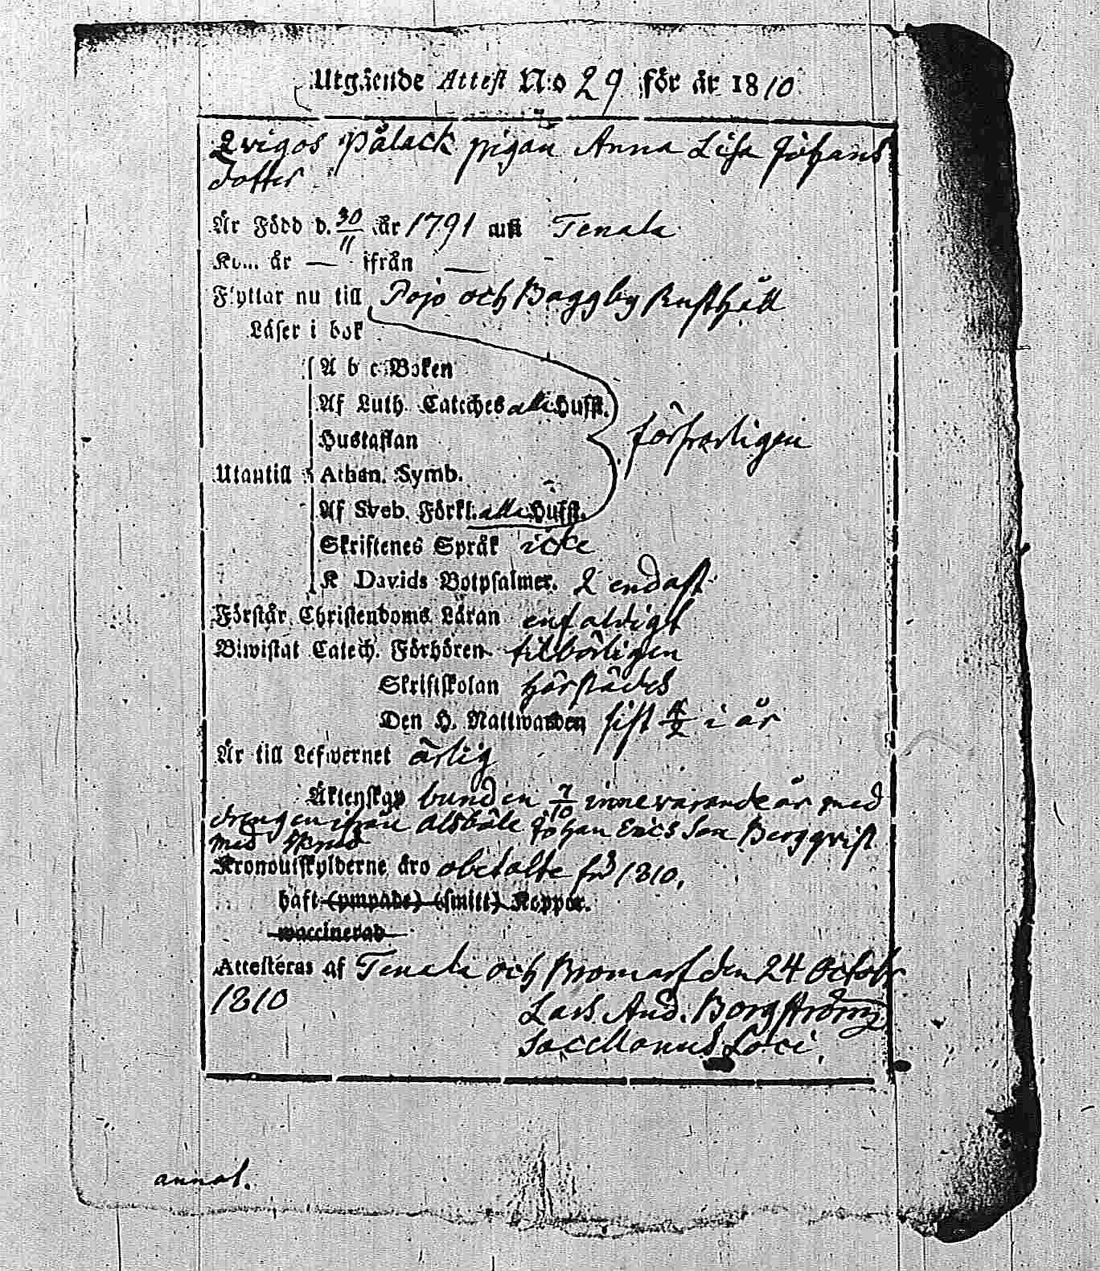 Utgående Attest N:o 29 för år 1810
Qvigos Pålack pigan Anna Lisa Johans
dotter
Är Född d. 30/11 år 1791 uti Tenala
Kom år — ifrån —
Flyttar nu till Pojo och Baggby Rusthåll
Läser i bok
A b c Boken
Af Luth. Cateches alla Hufst.
Hustaflan
Utantill Athan. Symb. försvarligen
Af Sveb. Förkl. alla Hufst.
Skriftenes Språk icke
K Davids Botpsalmer. 2 endast
Förstår Christendoms Läran enfaldigt
Biwistat Catech. Förhören tilbörligen
Skriftskolan härstädes
Den H. Nattwarden sist i år
Är till Lefwernet ärlig
Äktenskap bunden 7/10 innevarande år med
drengen ifrån Johan Ericsson Bergqvist
med
Kronoutskylderne äro obetalte för 1810.
haft (ympade) (smitt) Koppor.
waccinerad
Attesteras af Tenala och Bromarf den 24 Octobr
1810
Lars And. Borgström
Sacellanus Loci.
annot.